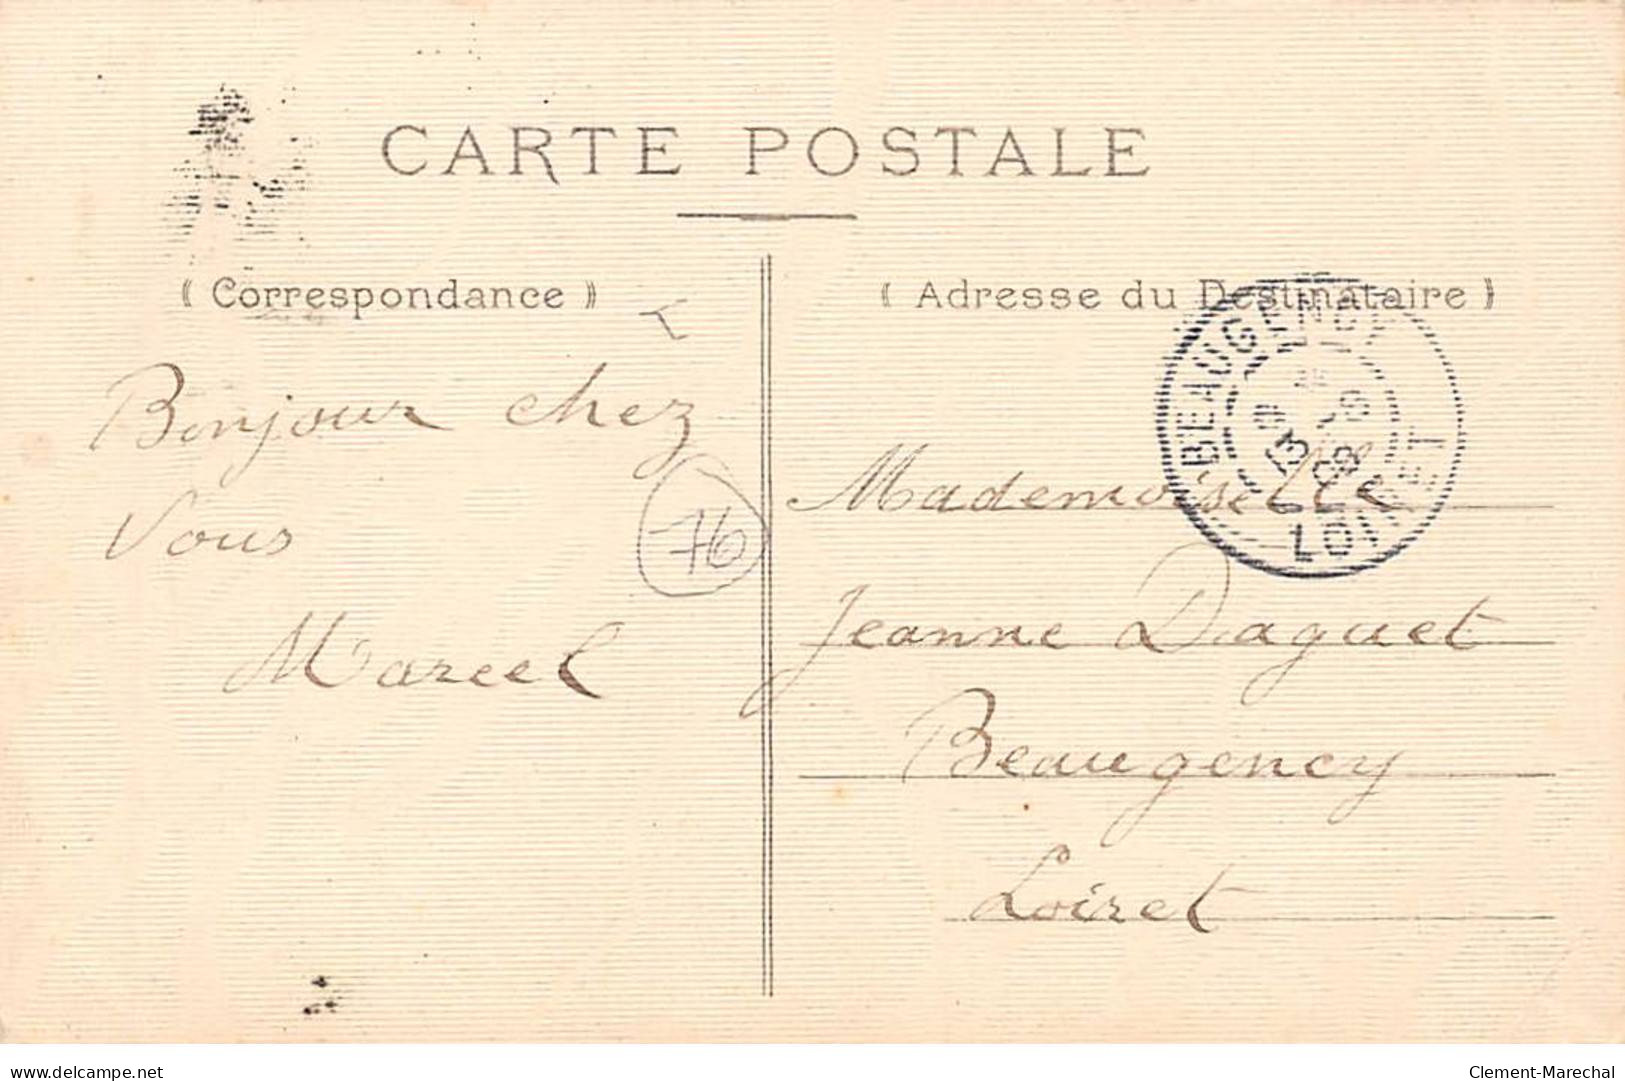 CARTE POSTALE
( Correspondance )
( Adresse du Destinataire )
Bonjour chez
Vous
Marcel
76
Mademoiselle
Jeanne Daguet
Beaugency
Loiret
BEAUGENCY
13
08
LOIRET
delcampe.net
Clement-Marechal